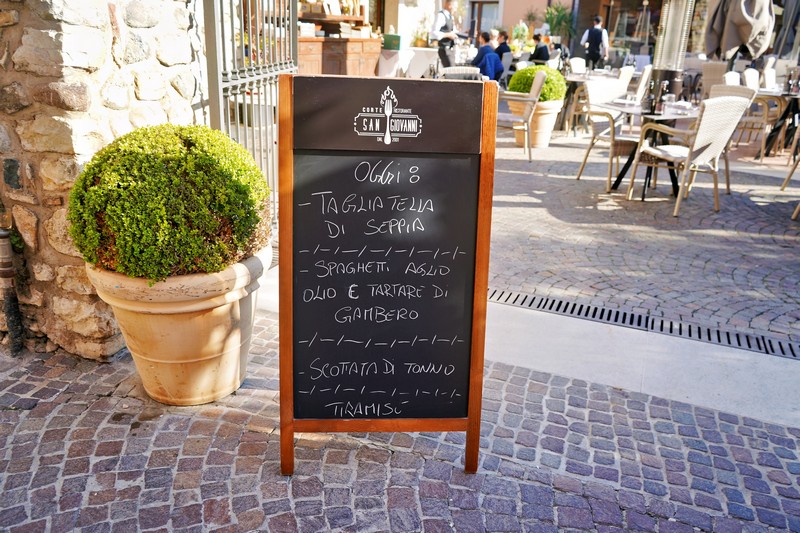 CORTE RISTORANTE
SAN GIOVANNI
DAL 2021
OGGI:
- TAGLIATELLA
DI SEPPIA
- SPAGHETTI AGLIO
OLIO E TARTARE DI
GAMBERO
- SCOTTATA DI TONNO
TIRAMISÚ